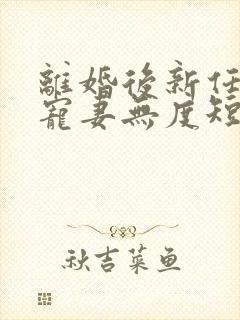 離婚後新任
寵妻無度短
秋吉菜鱼